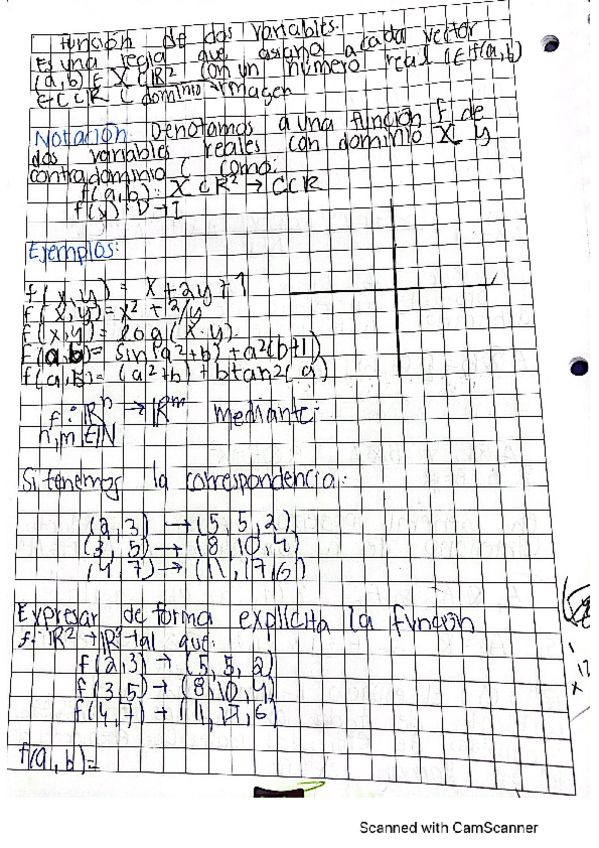 Función de dos variables.
Es una regla que asigna a cada vector
(a,b) ∈ X ⊂ ℝ² con un número real f(a,b)
∈ C ⊂ ℝ C dominio imagen
Notación: Denotamos a una función f de
dos variables reales con dominio X y
contradominio C como:
f(a,b): X ⊂ ℝ² → C ⊂ ℝ
f(x): D → I
Ejemplos:
f(x,y) = x + 2y + 1
f(x,y) = x² + 2/y
f(x,y) = log(x·y).
f(a,b) = sin(a²+b) + a²(b+1)
f(a,b) = (a²+b) + btan2(a)
f: ℝⁿ → ℝᵐ mediante:
n,m ∈ ℕ
Si tenemos la correspondencia:
(2,3) → (5,5,2)
(3,5) → (8,10,4)
(4,7) → (11,17,6)
Expresar de forma explícita la función
f: ℝ² → ℝ³ tal que:
f(2,3) → (5,5,2)
f(3,5) → (8,10,4)
f(4,7) → (11,17,6)
f(a,b)=
Scanned with CamScanner